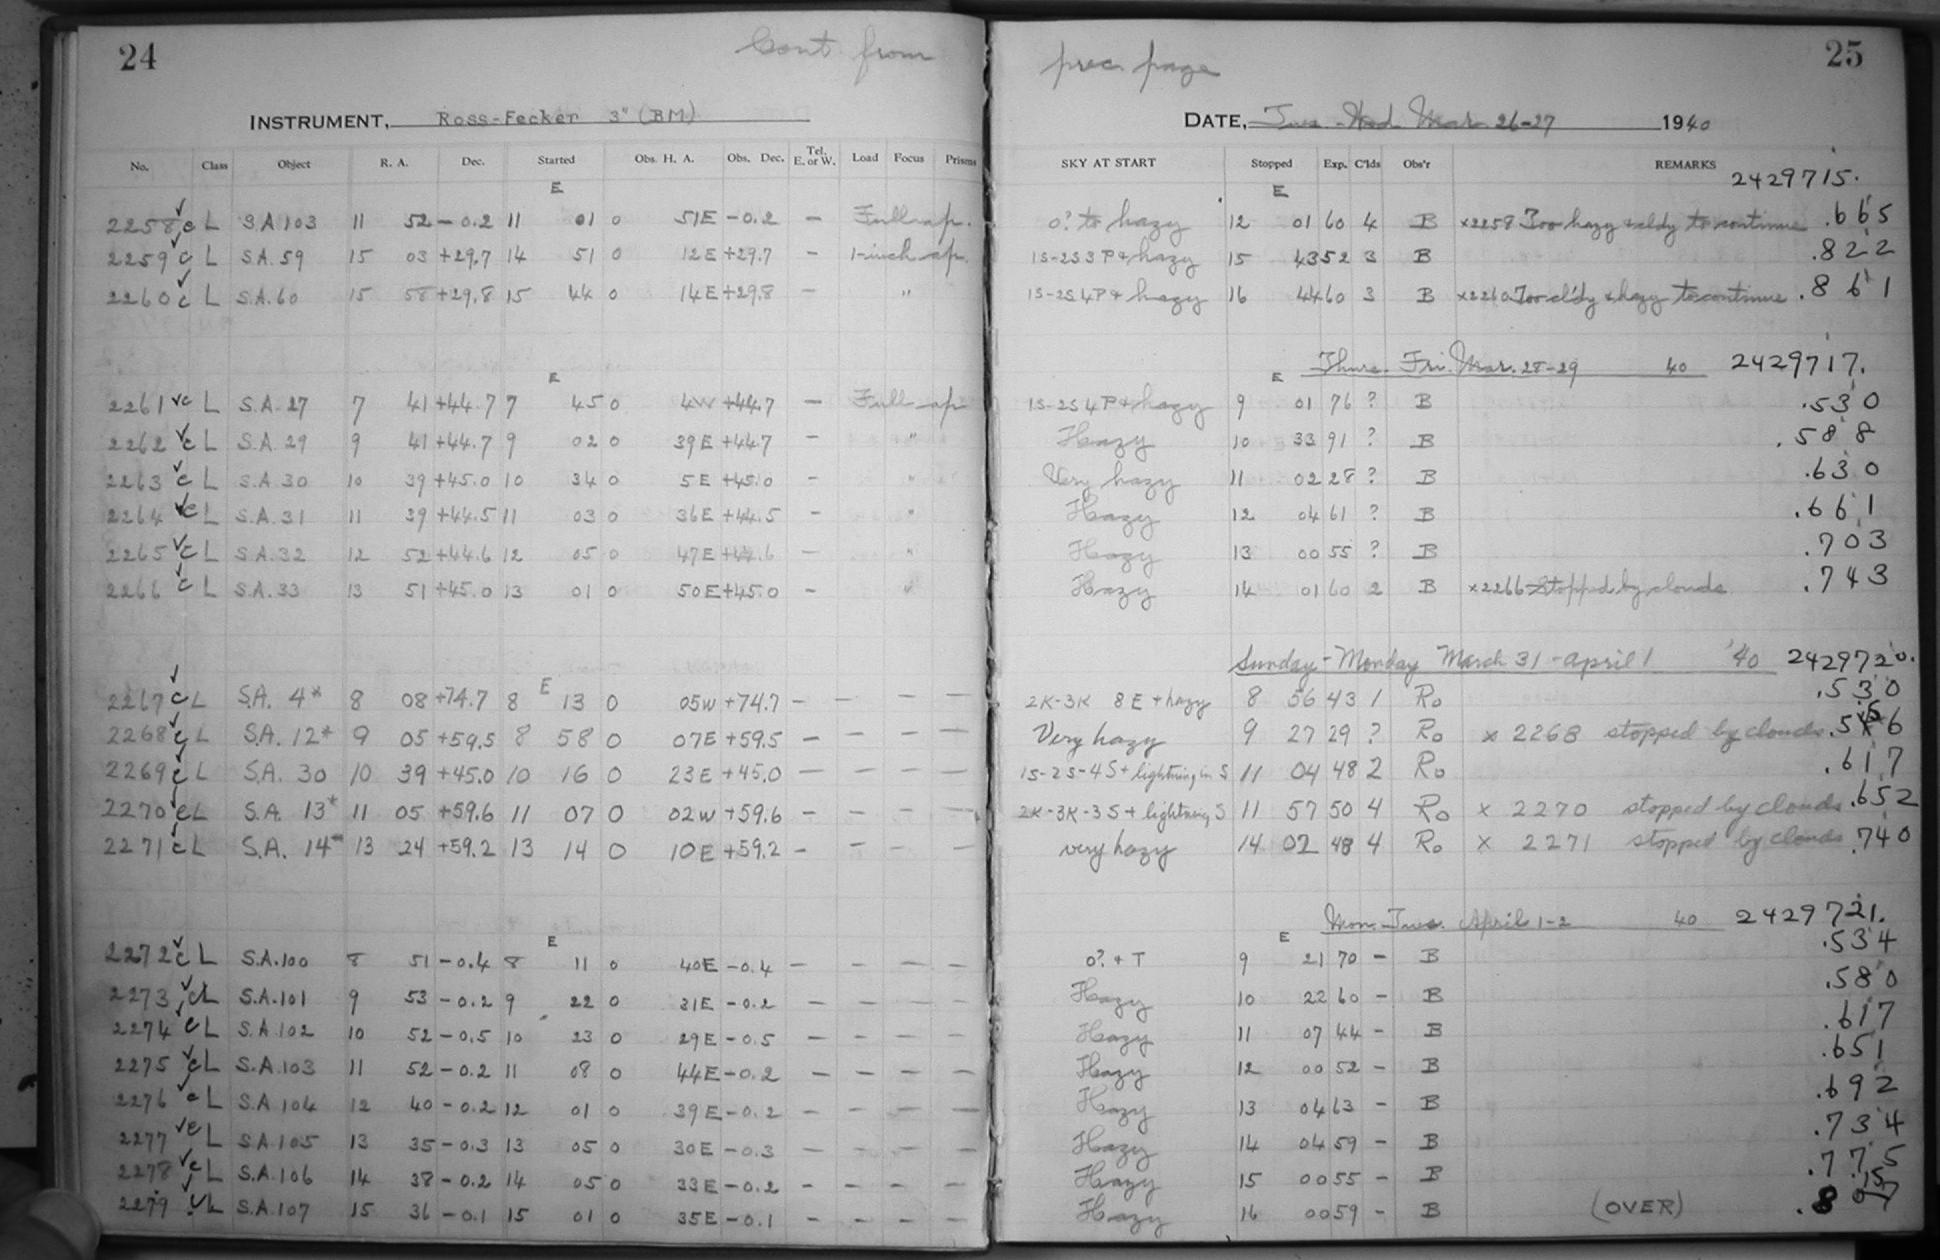 24 Cont from
prec. page 25
INSTRUMENT, Ross-Fecker 3" (BM) DATE, Tues-Wed Mar 26-27 1940
No. Class Object R. A. Dec. Started Obs. H. A. Obs. Dec. Tel. E. or W. Load Focus Prisms SKY AT START Stopped Exp. C'lds Obs'r REMARKS
E E 2429715.
2258 c L S.A.103 11 52 -0.2 11 01 0 51E -0.2 - Full ap. 0? to hazy 12 01 60 4 B x2258 Too hazy & cldy to continue .665
2259 c L S.A.59 15 03 +29.7 14 51 0 12E +29.7 - 1-inch ap. 1S-2S 3P+hazy 15 43 52 3 B .822
2260 c L S.A.60 15 58 +29.8 15 44 0 14E +29.8 - " 1S-2S 4P+hazy 16 44 60 3 B x2260 Too cl'dy & hazy to continue .861
Thurs-Fri. Mar. 28-29 40 2429717.
E E
2261 c L S.A.27 7 41 +44.7 7 45 0 4W +44.7 - Full ap 1S-2S 4P+hazy 9 01 76 ? B .530
2262 c L S.A.29 9 41 +44.7 9 02 0 39E +44.7 - " Hazy 10 33 91 ? B .588
2263 c L S.A.30 10 39 +45.0 10 34 0 5E +45.0 - " Very hazy 11 02 28 ? B .630
2264 c L S.A.31 11 39 +44.5 11 03 0 36E +44.5 - " Hazy 12 04 61 ? B .661
2265 c L S.A.32 12 52 +44.6 12 05 0 47E +44.6 - " Hazy 13 00 55 ? B .703
2266 c L S.A.33 13 51 +45.0 13 01 0 50E +45.0 - " Hazy 14 01 60 2 B x2266 Stopped by clouds .743
Sunday-Monday March 31-April 1 '40 2429720.
E
2267 c L S.A. 4* 8 08 +74.7 8 13 0 05W +74.7 - - - - 2K-3K 8E+hazy 8 56 43 1 Ro .530
2268 c L S.A. 12* 9 05 +59.5 8 58 0 07E +59.5 - - - - Very hazy 9 27 29 ? Ro x 2268 stopped by clouds
2269 c L S.A. 30 10 39 +45.0 10 16 0 23E +45.0 - - - - 1S-2S-4S+lightning in S 11 04 48 2 Ro .617
2270 c L S.A. 13* 11 05 +59.6 11 07 0 02W +59.6 - - - - 2K-3K-3S+lightning S 11 57 50 4 Ro x 2270 stopped by clouds .652
2271 c L S.A. 14* 13 24 +59.2 13 14 0 10E +59.2 - - - - very hazy 14 02 48 4 Ro x 2271 stopped by clouds .740
Mon-Tues. April 1-2 40 2429721.
E E
2272 c L S.A.100 8 51 -0.4 8 11 0 40E -0.4 - - - - 0?+T 9 21 70 - B .534
2273 c L S.A.101 9 53 -0.2 9 22 0 31E -0.2 - - - - Hazy 10 22 60 - B .580
2274 c L S.A.102 10 52 -0.5 10 23 0 29E -0.5 - - - - Hazy 11 07 44 - B .617
2275 c L S.A.103 11 52 -0.2 11 08 0 44E -0.2 - - - - Hazy 12 00 52 - B .651
2276 c L S.A.104 12 40 -0.2 12 01 0 39E -0.2 - - - - Hazy 13 04 63 - B .692
2277 c L S.A.105 13 35 -0.3 13 05 0 30E -0.3 - - - - Hazy 14 04 59 - B .734
2278 c L S.A.106 14 38 -0.2 14 05 0 33E -0.2 - - - - Hazy 15 00 55 - B .775
2279 c L S.A.107 15 36 -0.1 15 01 0 35E -0.1 - - - - Hazy 16 00 59 - B (OVER)